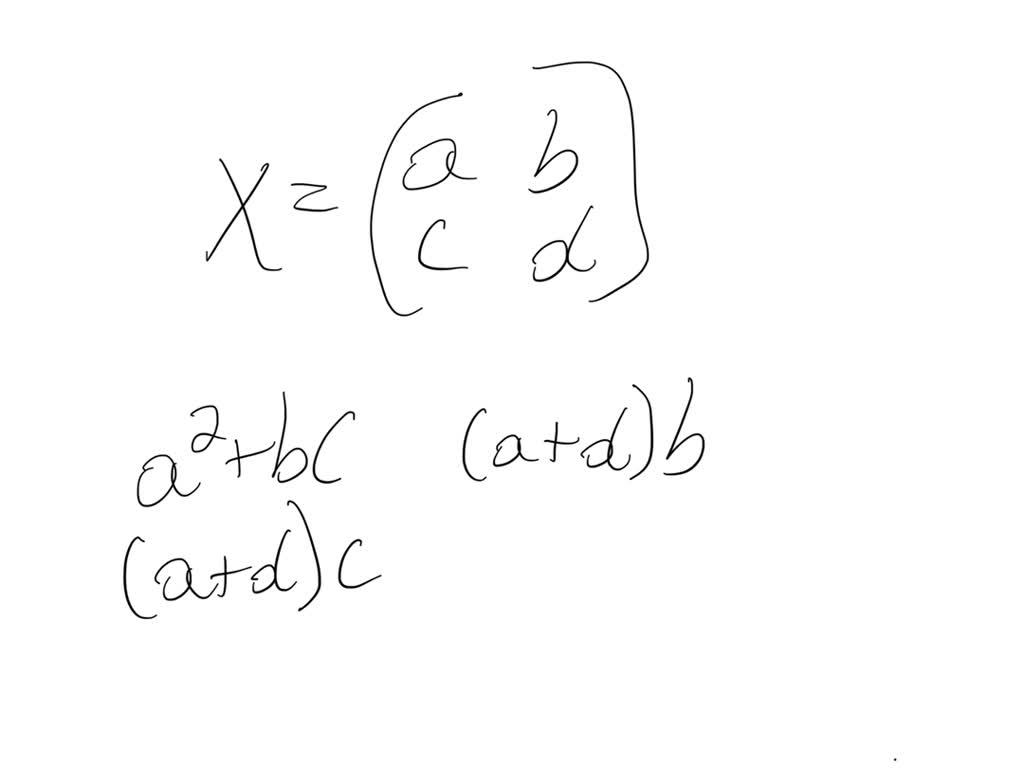 X = (a b
c d)
a²+bc (a+d)b
(a+d)c